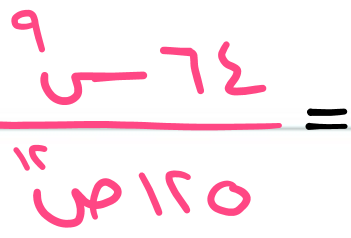 ٦٤ س٩ =
١٢٥ ص١٢